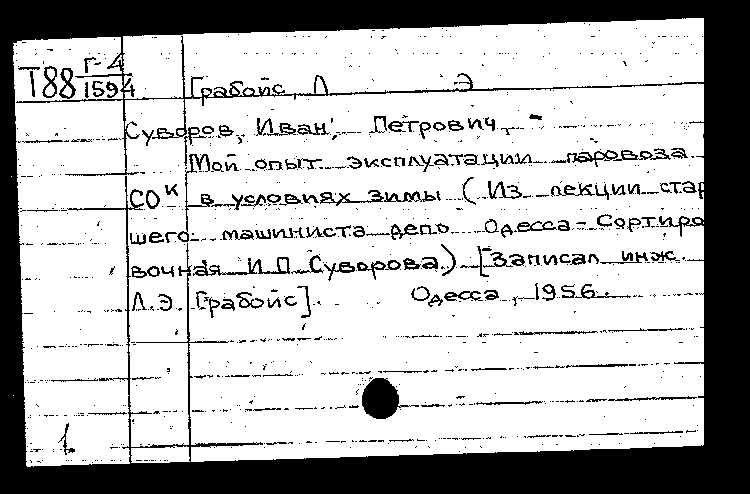 Г-4
Т88 1594 Грабойс, Л Э
Суворов, Иван, Петрович, -
Мой опыт эксплуатации паровоза
СОК в условиях зимы (Из лекции стар
шего машиниста депо Одесса-Сортиро
вочная И.П. Суворова) [Записал инж.
Л.Э. Грабойс]. Одесса, 1956.
1